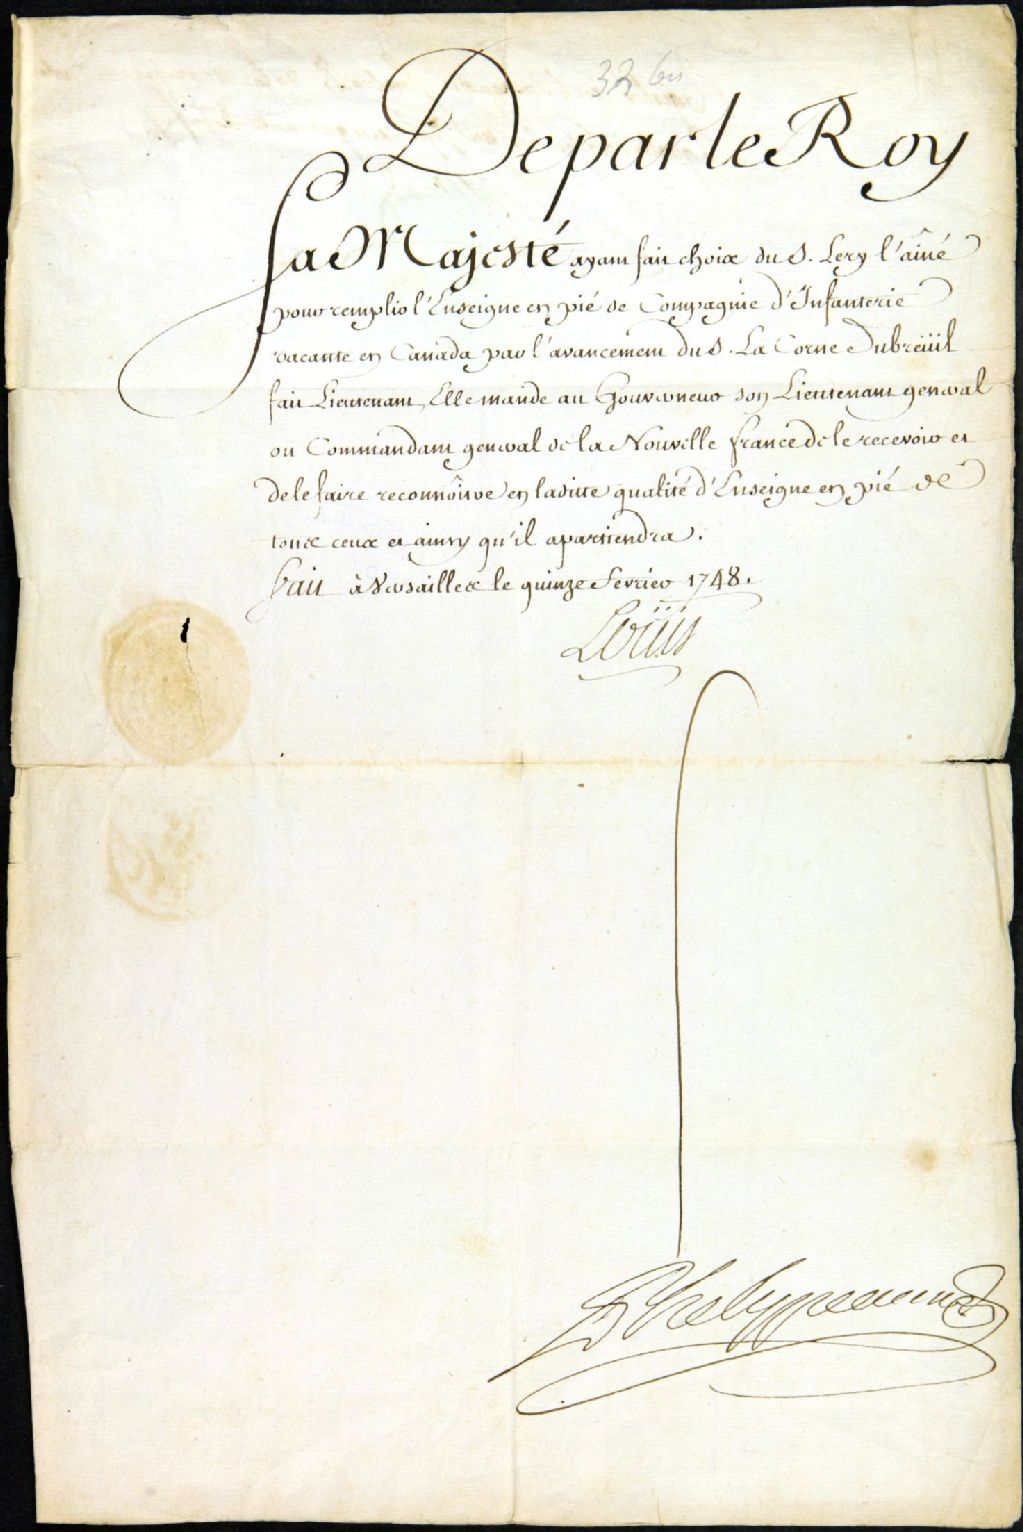 32 bis
De par le Roy
Sa Majesté ayant fait choix du S. Lery l'aîné
pour remplir l'Enseigne en pié de Compagnie d'Infanterie
vacante en Canada par l'avancement du S. La Corne Dubreüil
fait Lieutenant, Elle mande au Gouverneur son Lieutenant general
ou Commandant general de la Nouvelle france de le recevoir et
de le faire reconnoître en ladite qualité d'Enseigne en pié de
tous ceux et ainsy qu'il apartiendra.
Fait à Versailles le quinze Fevrier 1748.
Loüis
Phelypeaux